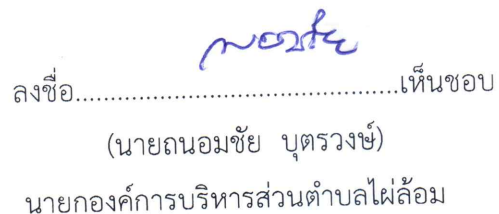 ลงชื่อ............................................เห็นชอบ
(นายถนอมชัย บุตรวงษ์)
นายกองค์การบริหารส่วนตำบลไผ่ล้อม